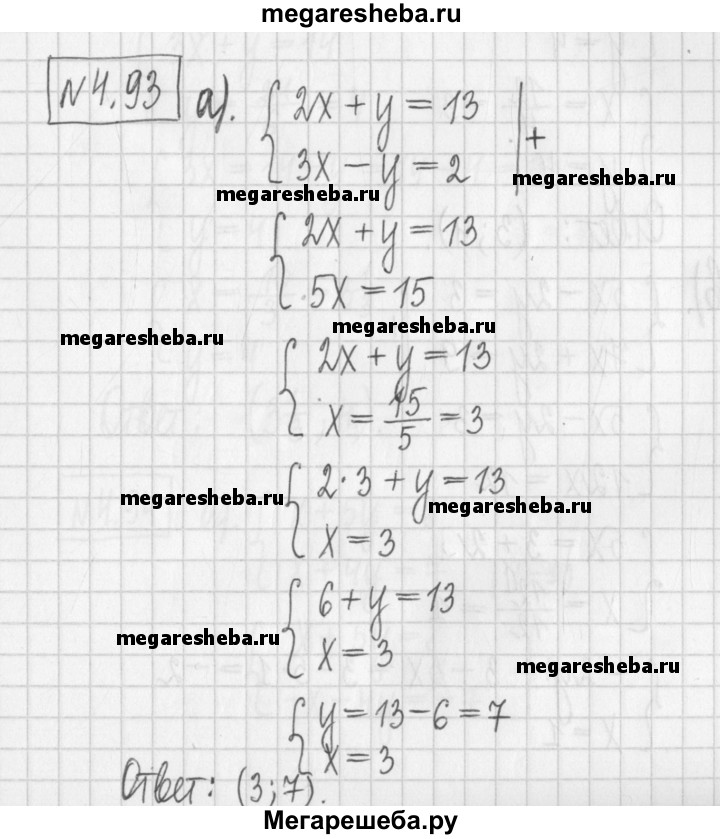 megaresheba.ru
№4.93 а). { 2x + y = 13 | +
3x − y = 2
megaresheba.ru
megaresheba.ru
{ 2x + y = 13
5x = 15
megaresheba.ru
megaresheba.ru
{ 2x + y = 13
x = 15/5 = 3
{ 2·3 + y = 13
megaresheba.ru
megaresheba.ru
x = 3
{ 6 + y = 13
megaresheba.ru
x = 3
megaresheba.ru
{ y = 13 − 6 = 7
x = 3
Ответ: (3; 7).
Мегарешеба.ру